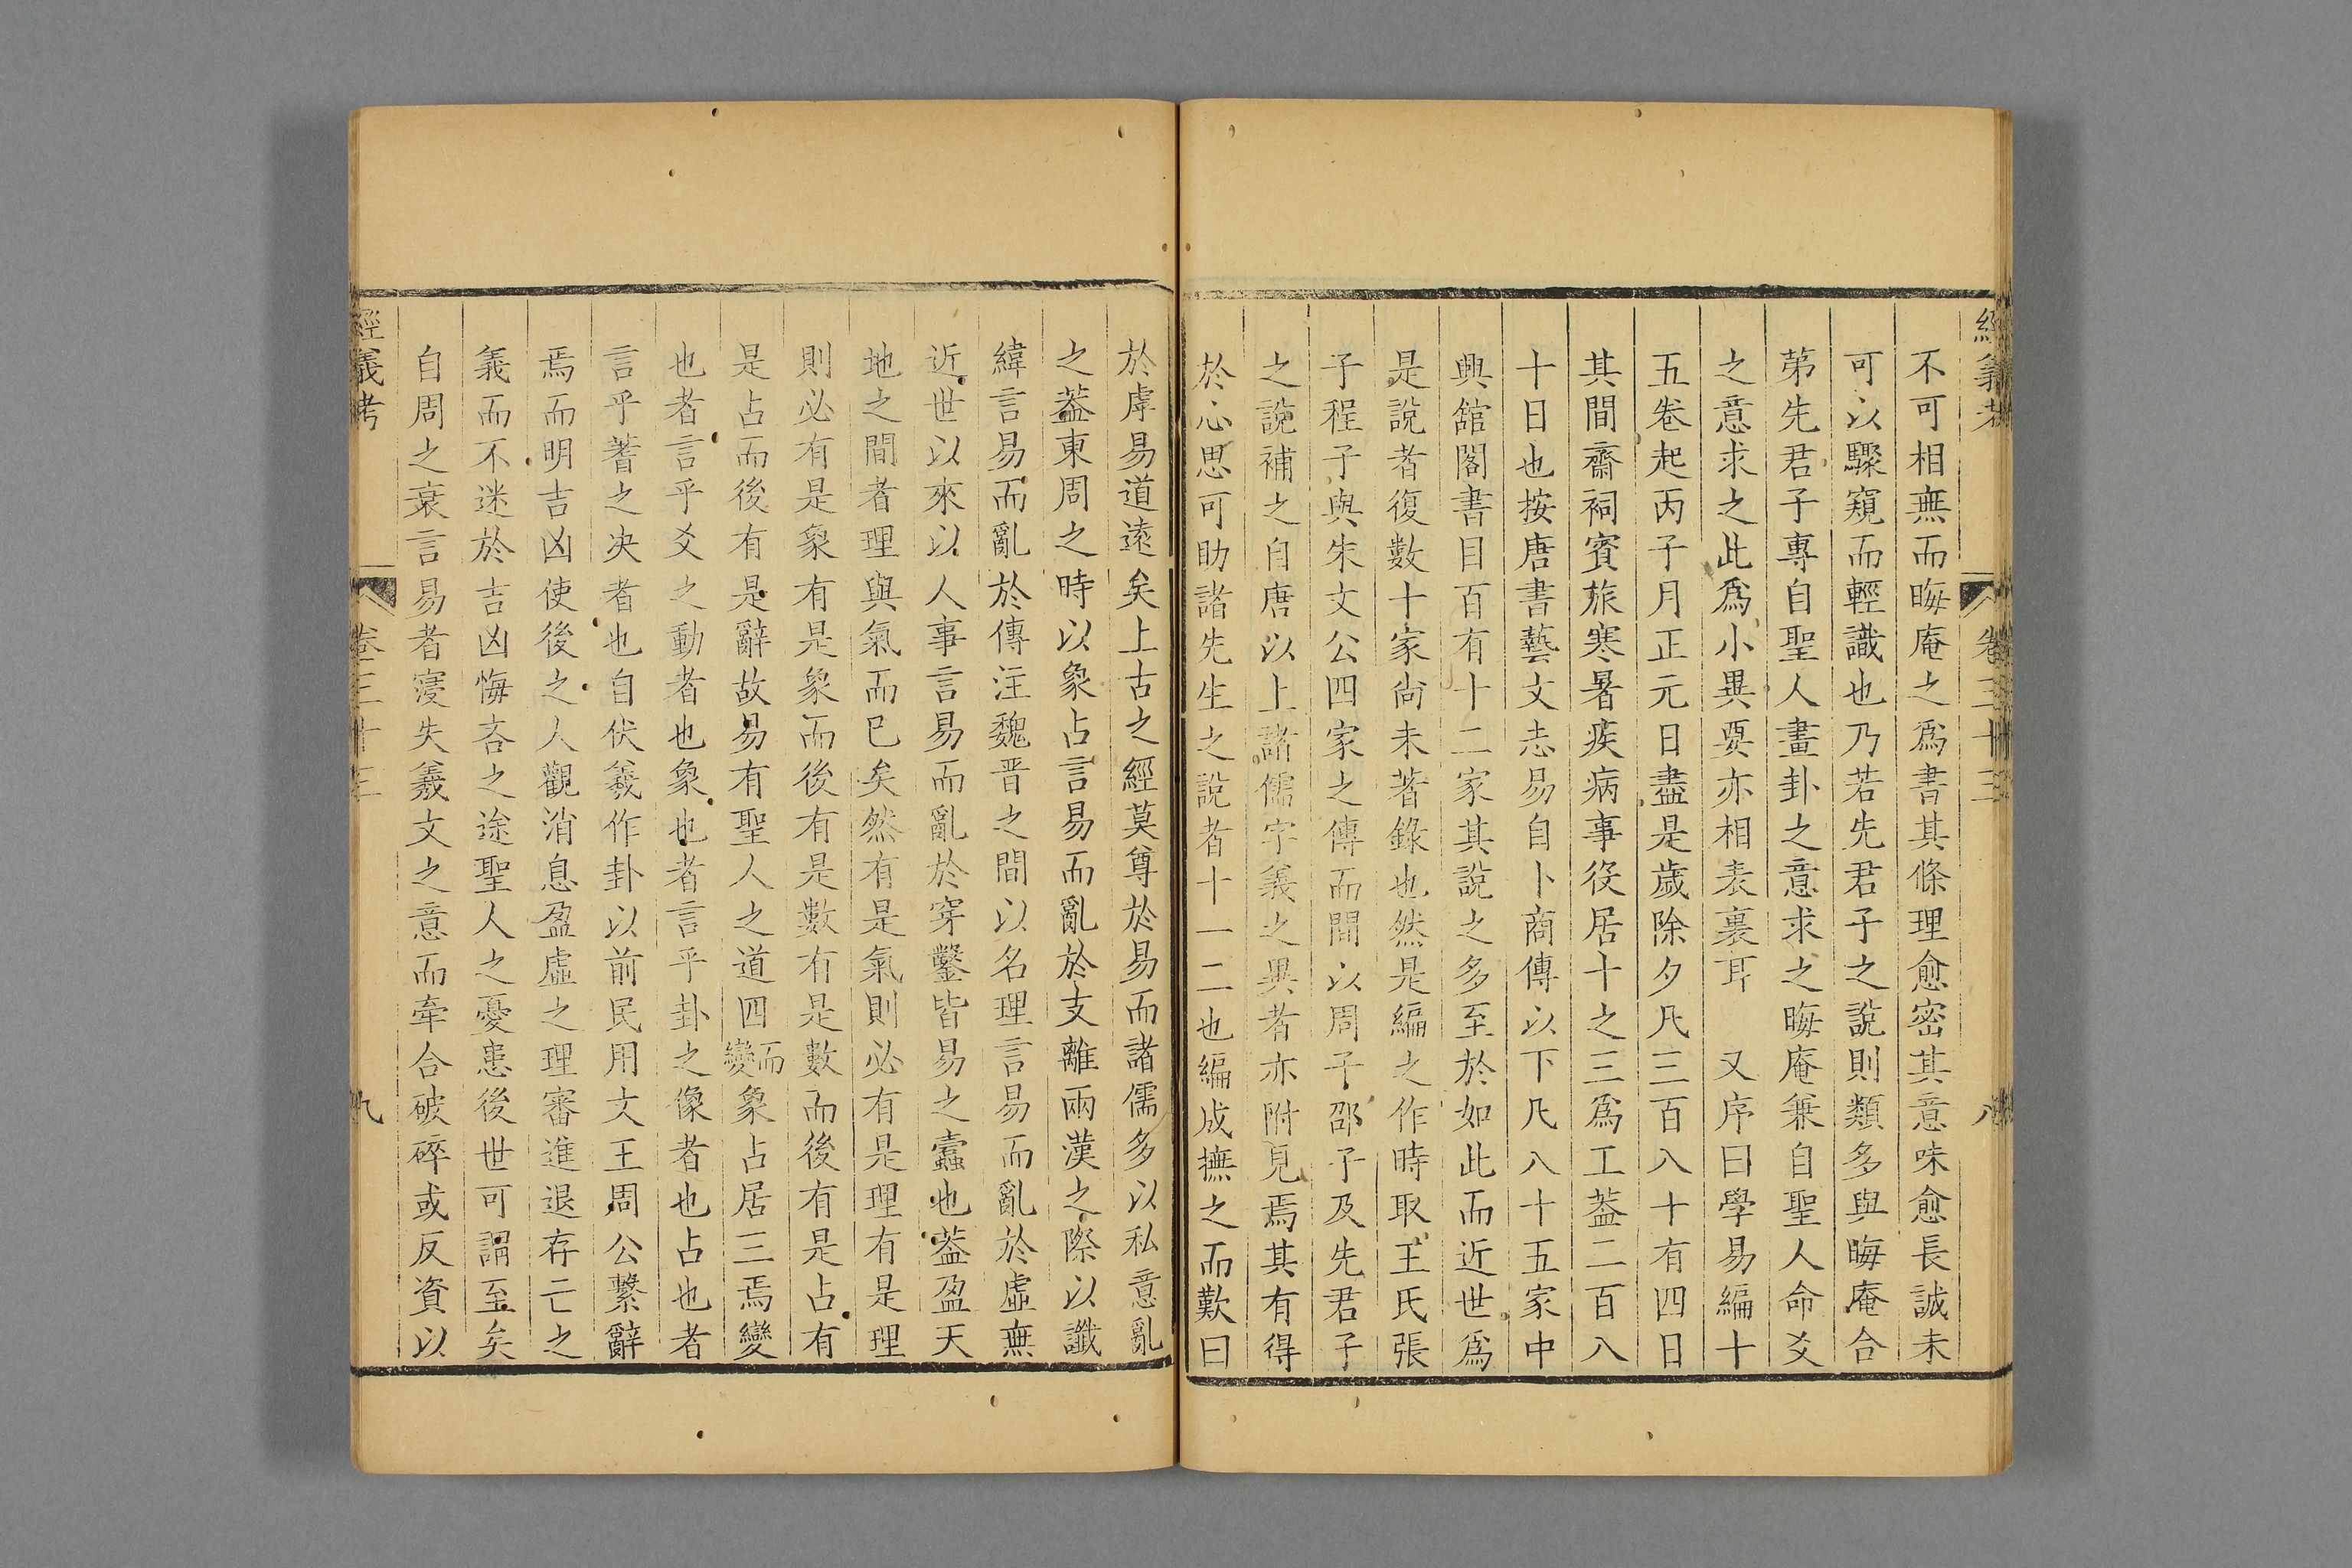 經義考 卷三十三 八
不可相無而晦庵之爲書其條理愈密其意味愈長誠未
可以驟窺而輕識也乃若先君子之說則類多與晦庵合
第先君子專自聖人畫卦之意求之晦庵兼自聖人命爻
之意求之此爲小異要亦相表裏耳 又序曰學易編十
五卷起丙子月正元日盡是歲除夕凡三百八十有四日
其間齋祠賓旅寒暑疾病事役居十之三爲工葢二百八
十日也按唐書藝文志易自卜商傳以下凡八十五家中
興舘閣書目百有十二家其說之多至於如此而近世爲
是說者復數十家尙未著錄也然是編之作時取王氏張
子程子與朱文公四家之傳而間以周子邵子及先君子
之說補之自唐以上諸儒字義之異者亦附見焉其有得
於心思可助諸先生之說者十一二也編成撫之而歎曰
於虖易道遠矣上古之經莫尊於易而諸儒多以私意亂
之葢東周之時以象占言易而亂於支離兩漢之際以讖
緯言易而亂於傳注魏晋之間以名理言易而亂於虛無
近世以來以人事言易而亂於穿鑿皆易之蠧也葢盈天
地之間者理與氣而已矣然有是氣則必有是理有是理
則必有是象有是象而後有是數有是數而後有是占有
是占而後有是辭故易有聖人之道四而變象占居三焉變
也者言乎爻之動者也象也者言乎卦之像者也占也者
言乎蓍之决者也自伏羲作卦以前民用文王周公繫辭
焉而明吉凶使後之人觀消息盈虛之理審進退存亡之
義而不迷於吉凶悔吝之途聖人之憂患後世可謂至矣
自周之衰言易者寖失羲文之意而牽合破碎或反資以
經義考 卷三十三 九